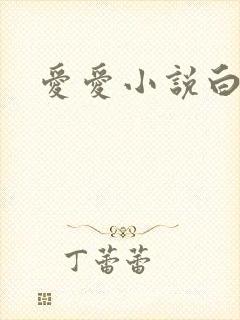 愛愛小說白
丁蕾蕾